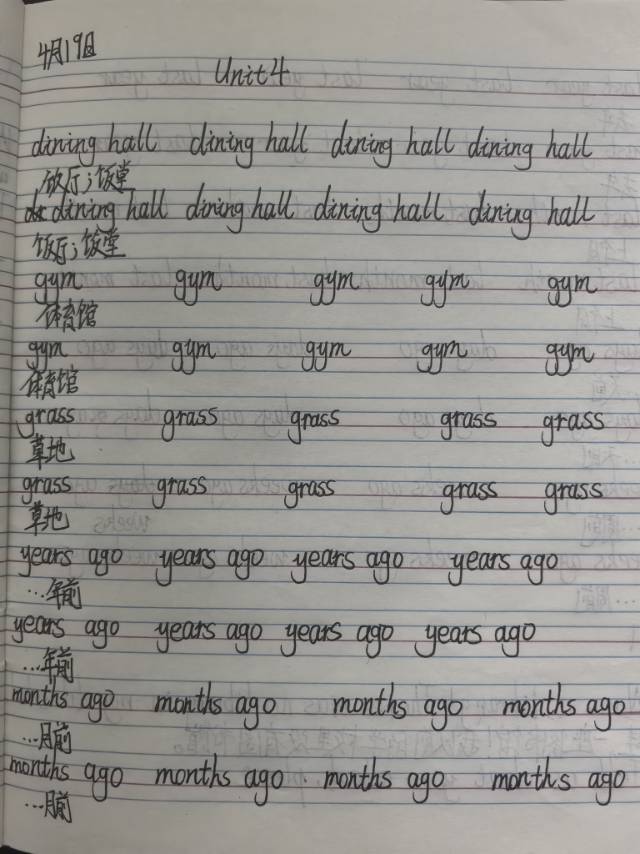 4月19日
Unit 4
dining hall dining hall dining hall dining hall
饭厅;饭堂
dining hall dining hall dining hall dining hall
饭厅;饭堂
gym gym gym gym gym
体育馆
gym gym gym gym gym
体育馆
grass grass grass grass grass
草地
grass grass grass grass grass
草地
years ago years ago years ago years ago
...年前
years ago years ago years ago years ago
...年前
months ago months ago months ago months ago
...月前
months ago months ago months ago months ago
...月前